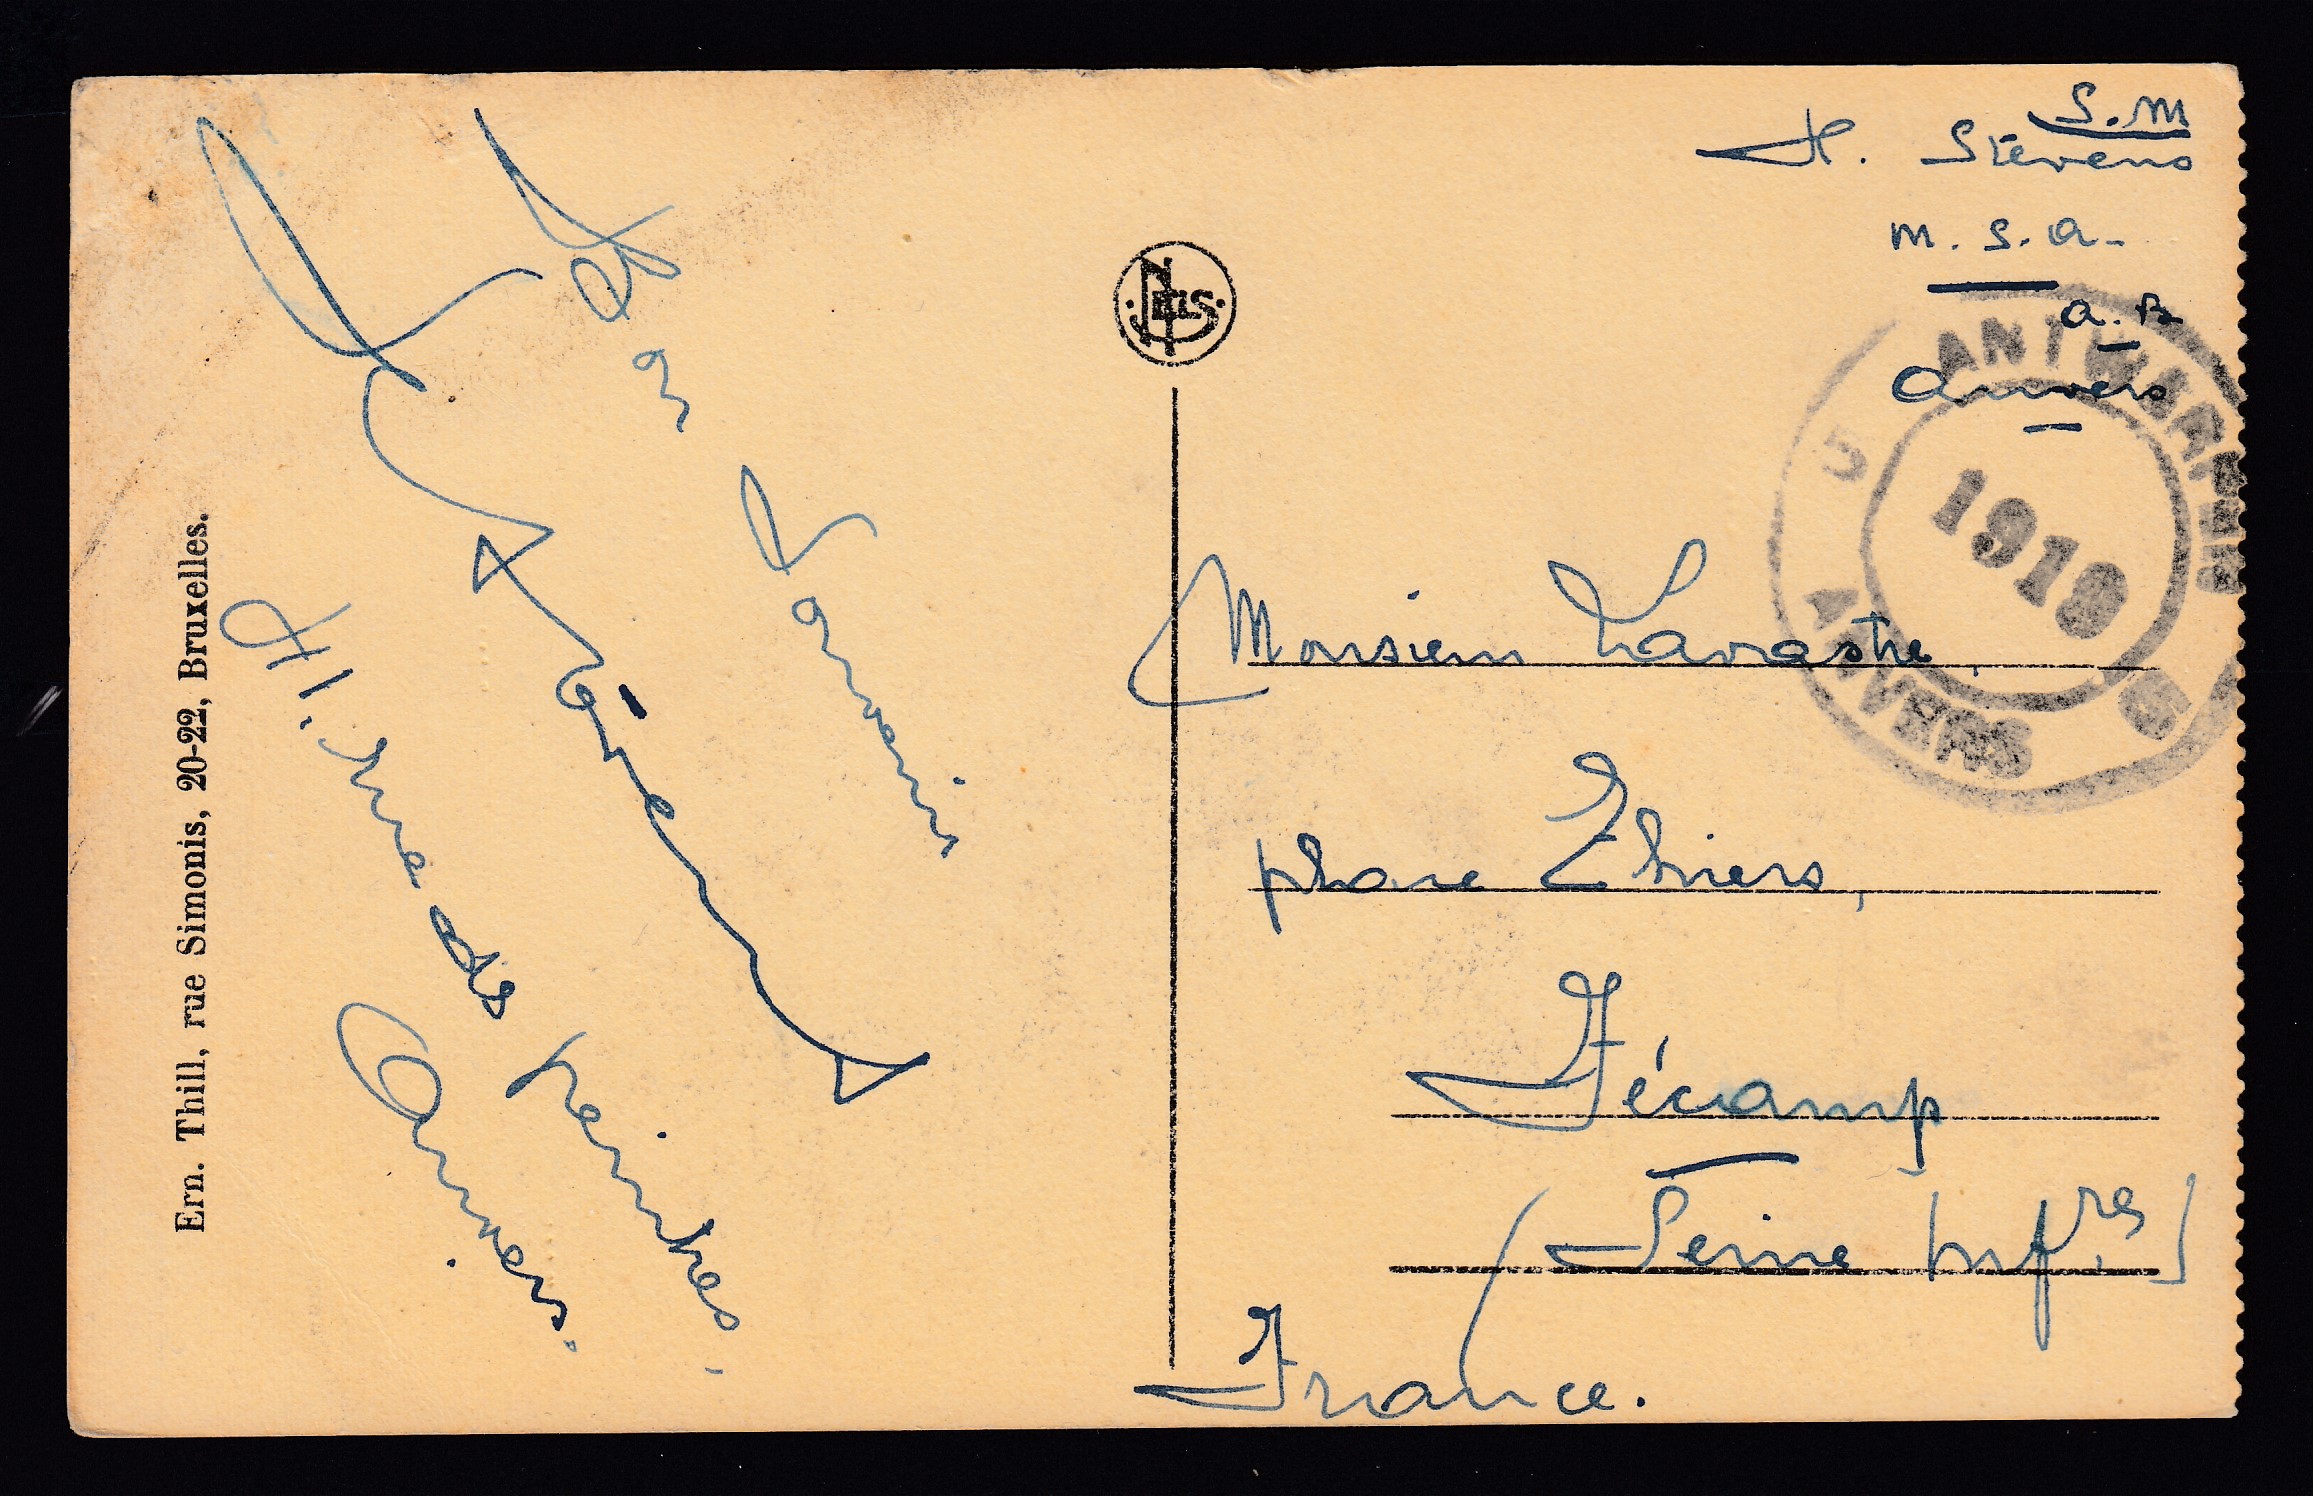 Bon Souvenir
H. Stevens
41. rue des peintres.
Anvers.
Ern. Thill, rue Simonis, 20-22, Bruxelles.
NELS
S.M
H. Stevens
M.S.A.
A.B
Anvers
ANTWERPEN
1919
ANVERS
Monsieur Lavrastre,
phare Thiers,
Fécamp
(Seine Infres)
France.